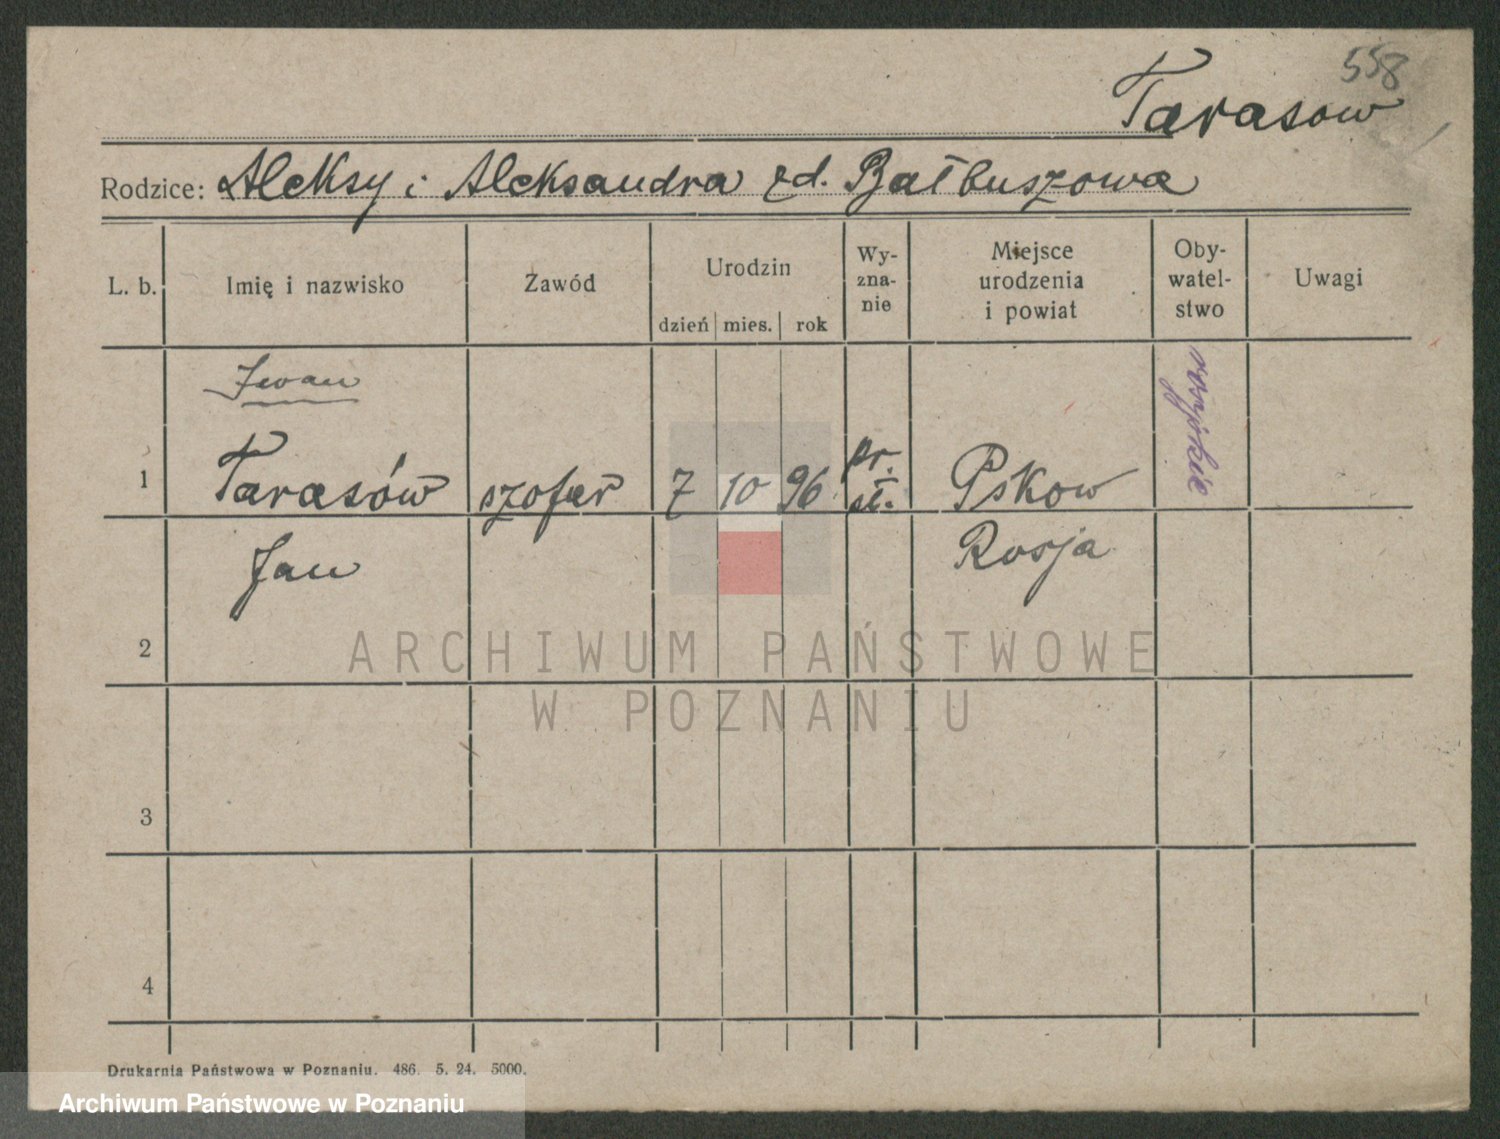 558
Tarasow
Rodzice: Aleksy i Aleksandra zd. Bałbuszowa
L. b. Imię i nazwisko Zawód Urodzin dzień mies. rok Wy-zna-nie Miejsce urodzenia i powiat Oby-watel-stwo Uwagi
Iwan
1 Tarasów szofer 7 10 96 pr. sł. Pskow rosyjskie
Jan Rosja
2
ARCHIWUM PAŃSTWOWE
W POZNANIU
3
4
Drukarnia Państwowa w Poznaniu. 486. 5. 24. 5000.
Archiwum Państwowe w Poznaniu